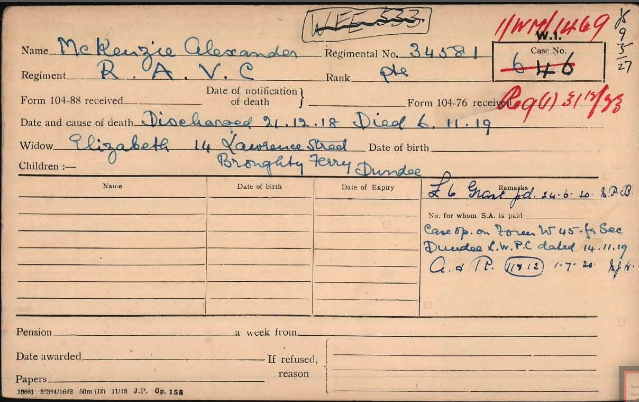 WFE 533
1/WM/1469
8/9/5/27
Name McKenzie Alexander Regimental No. 34581
W.I.
Case No.
6 46
Regiment R. A. V. C Rank pte
Form 104-88 received Date of notification of death } Form 104-76 received Reg(1) 31/12/33
Date and cause of death Discharged 21.12.18 Died 6.11.19
Widow Elizabeth 14 Lawrence Street Date of birth
Broughty Ferry Dundee
Children :—
Name Date of birth Date of Expiry Remarks
£6 Grant pd. 24-6-20
No. for whom S.A. is paid
Case op. on Form W 45 fr Sec
Dundee L.W.P.C dated 14.11.19
1-7-20
Pension a week from
Date awarded If refused, reason
Papers
50m (12) 11/18 J.P. Gp. 158